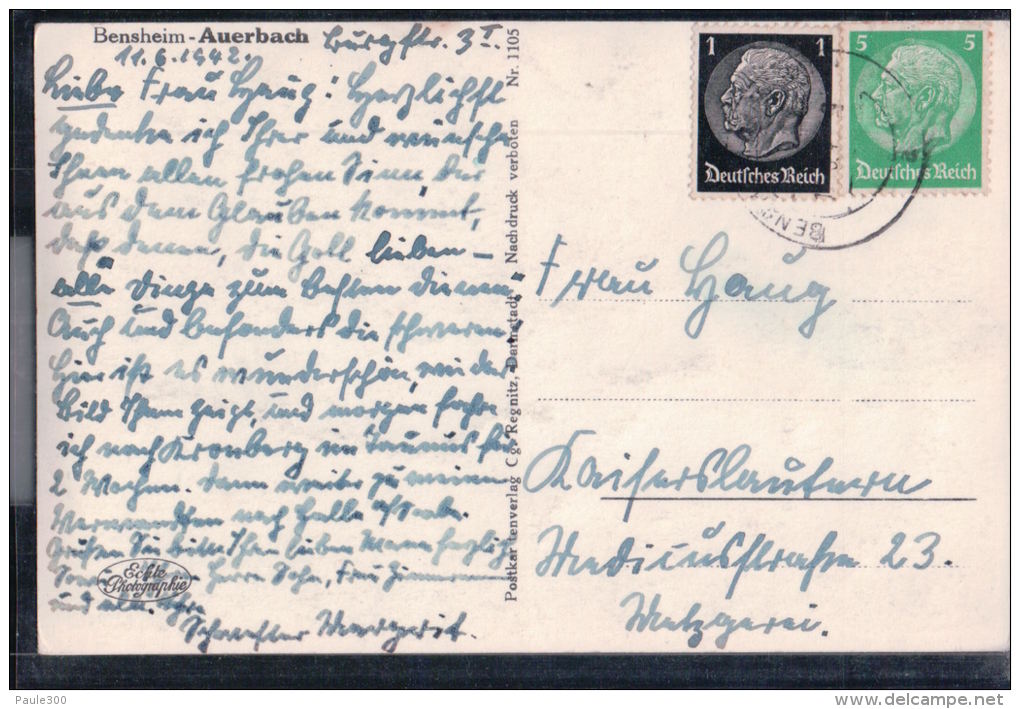 Bensheim - Auerbach Burgstr. 3 I.
11.6.1942.
Liebe Frau Haug! Herzlichst
gedenke ich Ihrer und wünsche
Ihnen allen frohen Sinn, der
aus dem Glauben kommt,
daß denen, die Gott lieben –
alle Dinge zum Besten dienen,
Auch und besonders die schweren.
Hier ist es wunderschön, wie das
Bild Ihnen zeigt, und morgen fahre
ich nach Kronberg im Taunus für
2 Wochen. Dann weiter zu meinen
Verwandten nach Halle a/Saale.
Grüßen Sie bitte Ihren lieben Mann herzlich
Herrn Sohn, Frau Zimmermann
und alle. Ihre
Schwester Margrit.
Echte
Photographie
Postkartenverlag Cg. Regnitz, Darmstadt Nachdruck verboten Nr. 1105
1 1
Deutsches Reich
5 5
Deutsches Reich
BENS
Frau Haug
Kaiserslautern
Medicusstraße 23.
Metzgerei.
Paule300
delcampe.net